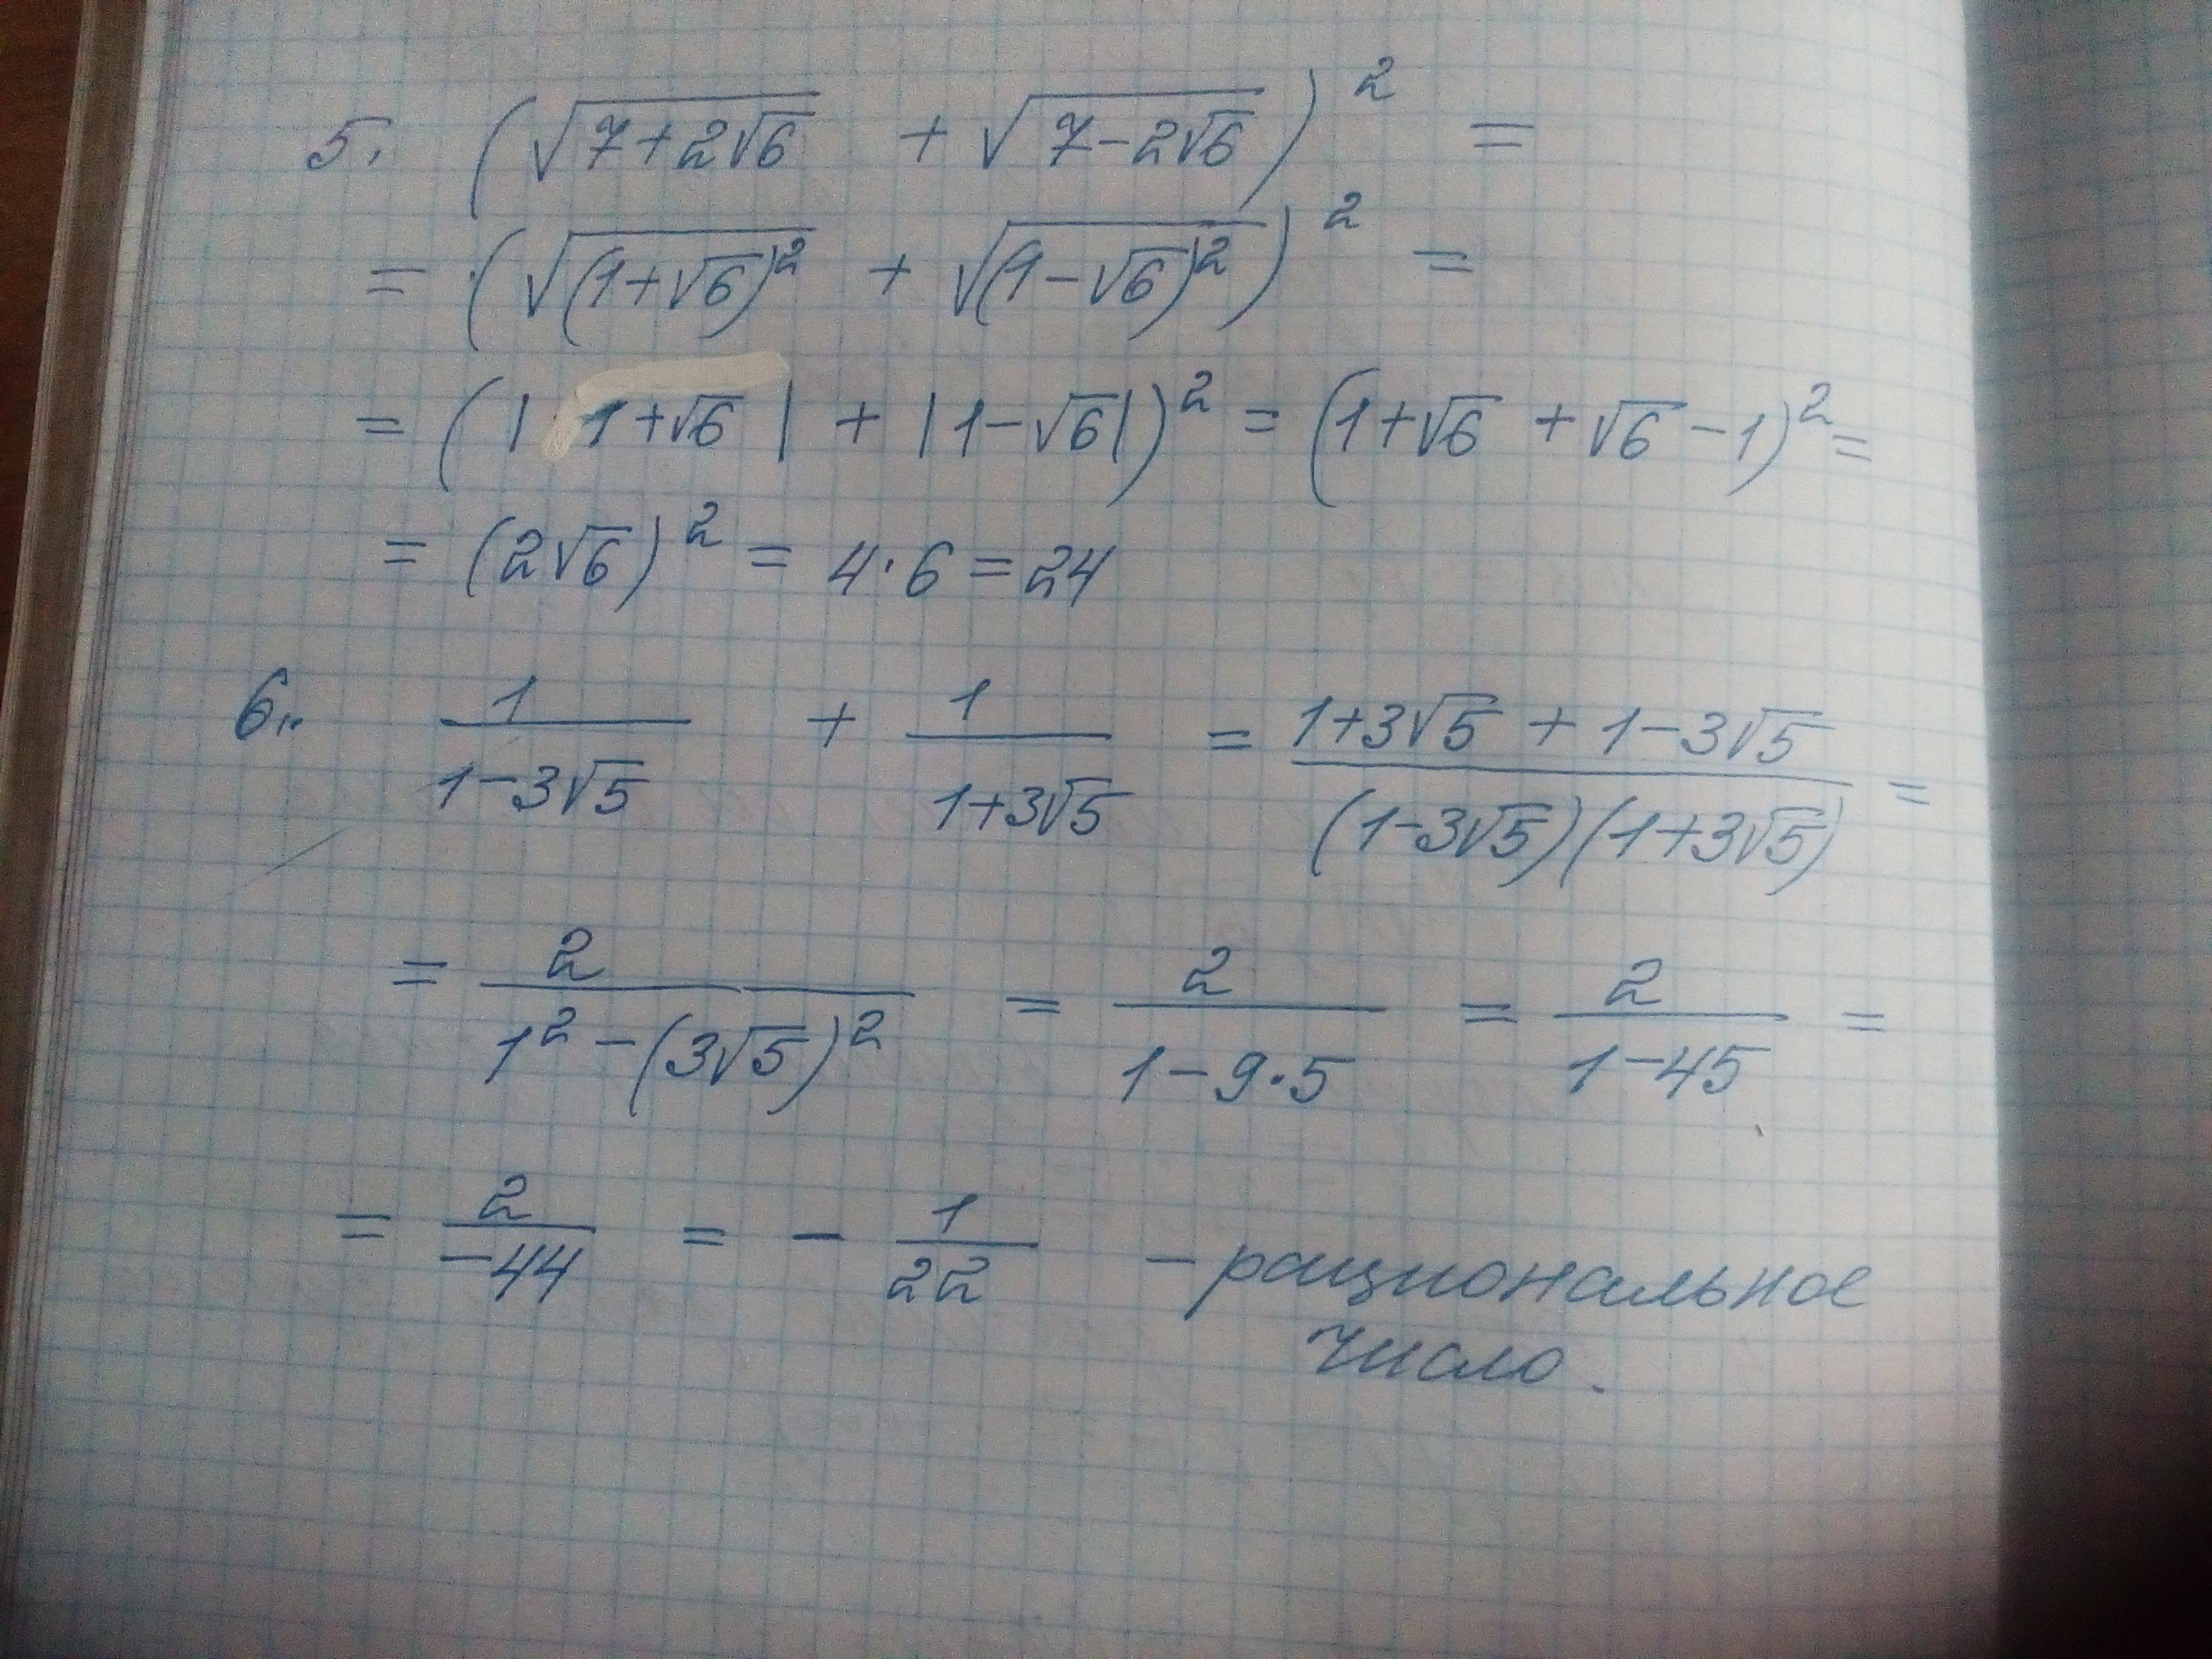 5. (√(7+2√6) + √(7-2√6))² =
= (√((1+√6)²) + √((1-√6)²))² =
= (|1+√6| + |1-√6|)² = (1+√6 + √6 -1)² =
= (2√6)² = 4·6 = 24
6. 1/(1-3√5) + 1/(1+3√5) = (1+3√5 + 1-3√5)/((1-3√5)(1+3√5)) =
= 2/(1² - (3√5)²) = 2/(1-9·5) = 2/(1-45) =
= 2/(-44) = - 1/22 - рациональное
число.